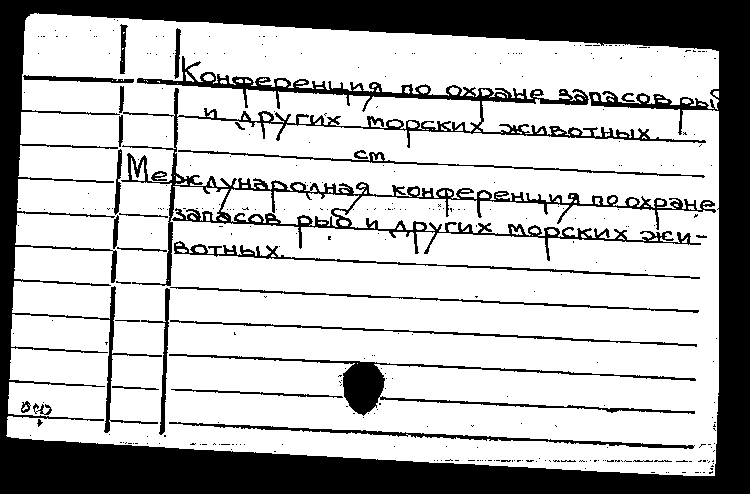 Конференция по охране запасов рыб
и других морских животных.
ст.
Международная конференция по охране
запасов рыб и других морских жи-
вотных.